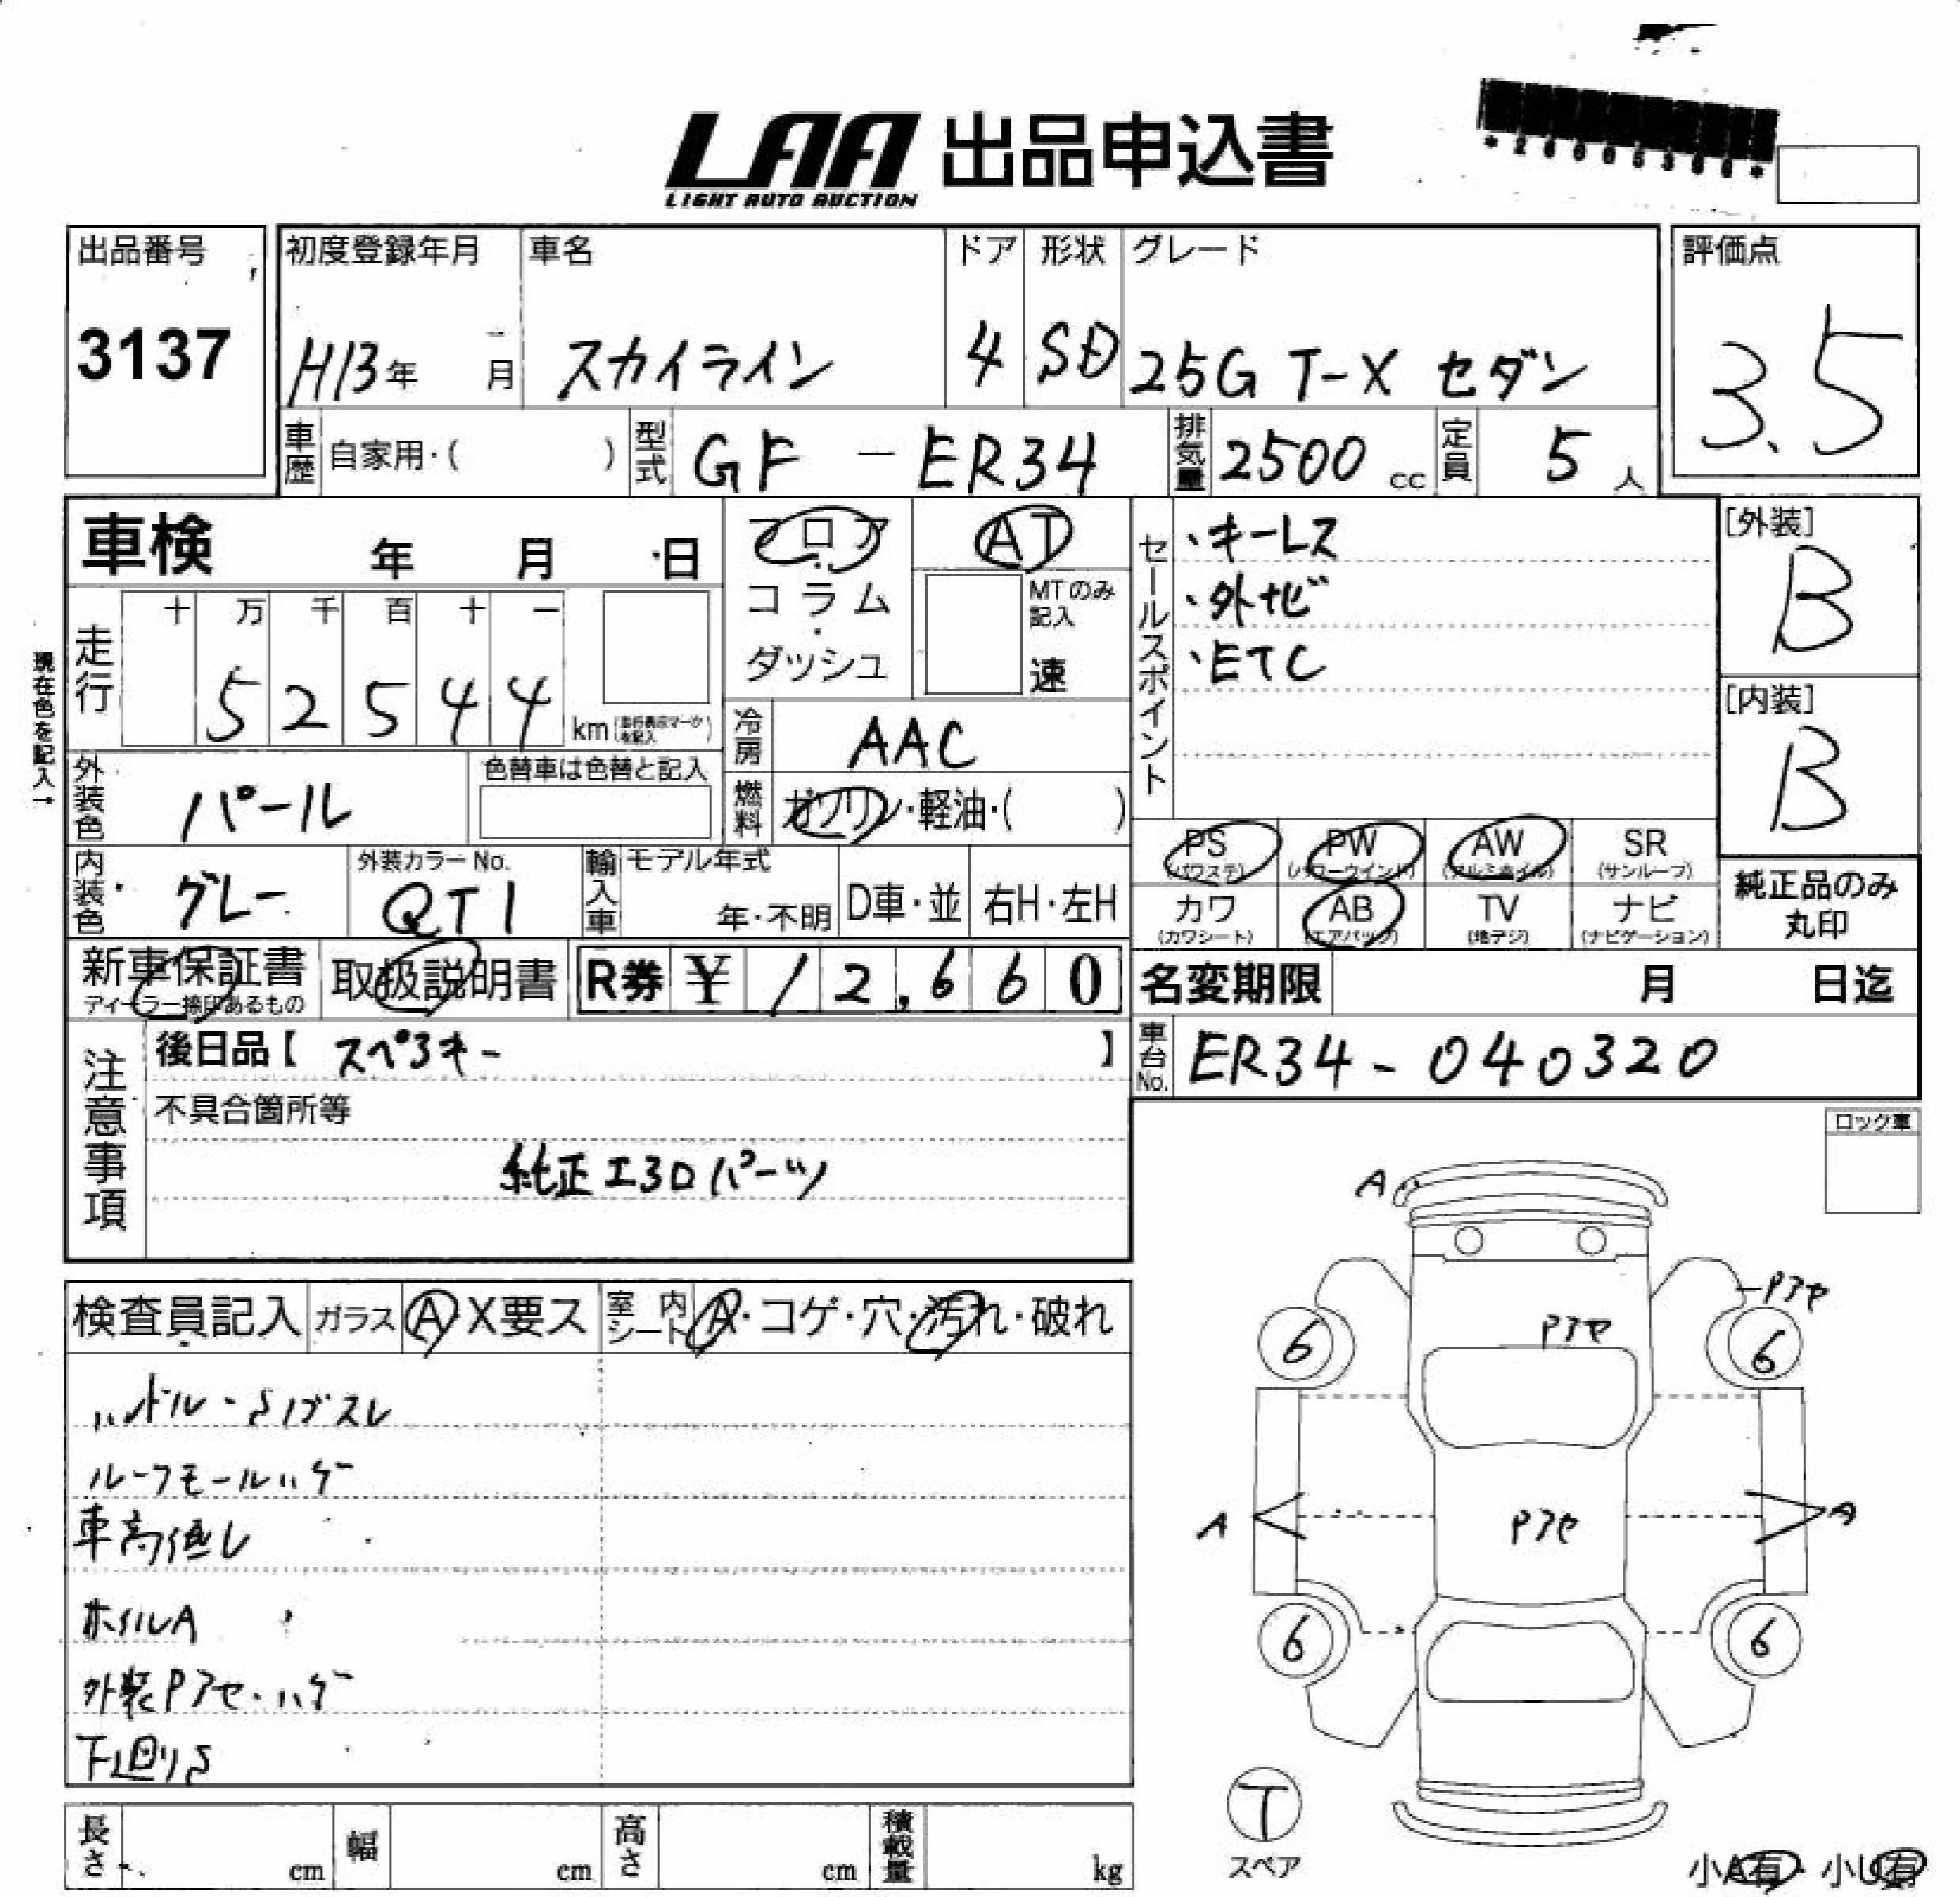 LAA 出品申込書
LIGHT AUTO AUCTION
出品番号
3137
初度登録年月 車名 ドア 形状 グレード
H13年 月 スカイライン 4 SD 25G T-X セダン
評価点
3.5
車歴 自家用・( ) 型式 GF - ER34 排気量 2500 cc 定員 5 人
車検 年 月 日
フロア・コラム・ダッシュ
AT
MTのみ記入
速
セールスポイント
・キーレス
・外ナビ
・ETC
[外装]
B
[内装]
B
現在色を記入→
走行 十 万 千 百 十 一
5 2 5 4 4 km
冷房 AAC
外装色 パール
色替車は色替と記入
燃料 ガソリン・軽油・( )
内装色 グレー
外装カラーNo.
QT1
輸入車 モデル年式
年・不明 D車・並 右H・左H
PS PW AW SR
(パワステ) (パワーウインド) (アルミホイル) (サンルーフ)
カワ AB TV ナビ
(カワシート) (エアバック) (地デジ) (ナビゲーション)
純正品のみ
丸印
新車保証書 取扱説明書 R券 ¥ 12,660
ディーラー捺印あるもの
名変期限 月 日迄
車台No. ER34-040320
注意事項
後日品【 スペアキー 】
不具合箇所等
純正エアロパーツ
ロック車
検査員記入 ガラス A・X要ス 室内シート A・コゲ・穴・汚れ・破れ
ハンドル・Sノブスレ
ルーフモールハゲ
車高低し
ホイルA
外装Pアセ・ハゲ
下廻りS
A
Pアセ
Pアセ
6 6
A Pアセ A
6 6
T
スペア
小A有・小U有
長さ cm 幅 cm 高さ cm 積載量 kg